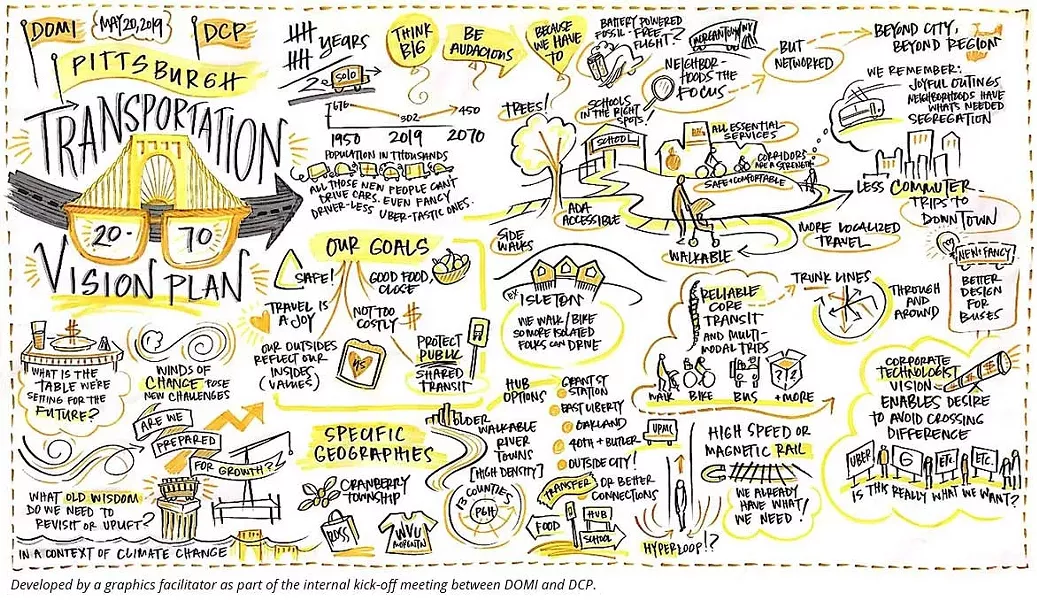 DOMI
MAY 20, 2019
DCP
PITTSBURGH
TRANSPORTATION
20-
70
VISION PLAN
YEARS
SOLO
THINK
BIG
BE
AUDACIOUS
BECAUSE
WE HAVE
TO
676
302
450
1950
2019
2070
POPULATION IN THOUSANDS
ALL THOSE NEW PEOPLE CAN'T
DRIVE CARS. EVEN FANCY
DRIVER-LESS UBER-TASTIC ONES.
BATTERY POWERED
FOSSIL-FREE
FLIGHT?
MORGANTOWN/WV
NEIGHBOR-
HOODS THE
FOCUS
BUT
NETWORKED
BEYOND CITY,
BEYOND REGION
WE REMEMBER:
JOYFUL OUTINGS
NEIGHBORHOODS HAVE
WHAT'S NEEDED
SEGREGATION
TREES!
SCHOOLS
IN THE RIGHT
SPOTS
SCHOOL
ALL ESSENTIAL
SERVICES
CORRIDORS
ARE A STRENGTH
SAFE + COMFORTABLE
ADA
ACCESSIBLE
WALKABLE
LESS COMMUTER
TRIPS TO
DOWNTOWN
MORE LOCALIZED
TRAVEL
OUR GOALS
SAFE!
GOOD FOOD,
CLOSE
TRAVEL IS
A JOY
NOT TOO
COSTLY $
OUR OUTSIDES
REFLECT OUR
INSIDES
(VALUES)
PROTECT
PUBLIC
SHARED
TRANSIT
SIDE
WALKS
EX
ISLETON
WE WALK/BIKE
SO MORE ISOLATED
FOLKS CAN DRIVE
RELIABLE
CORE
TRANSIT
AND MULTI-
MODAL TRIPS
WALK
BIKE
BUS
+MORE
TRUNK LINES
THROUGH
AND
AROUND
NEW! FANCY
BETTER
DESIGN
FOR
BUSES
WHAT IS THE
TABLE WE'RE
SETTING FOR THE
FUTURE?
WINDS OF
CHANGE POSE
NEW CHALLENGES
ARE WE
PREPARED
FOR GROWTH?
WHAT OLD WISDOM
DO WE NEED TO
REVISIT OR UPLIFT?
IN A CONTEXT OF CLIMATE CHANGE
SPECIFIC
GEOGRAPHIES
CRANBERRY
TOWNSHIP
ROSS
WVU
MORGNTN
OLDER
WALKABLE
RIVER
TOWNS
[HIGH DENSITY]
13 COUNTIES
PGH
HUB
OPTIONS
GRANT ST
STATION
EAST LIBERTY
OAKLAND
40TH + BUTLER
OUTSIDE CITY!
UPMC
TRANSFER
OR BETTER
CONNECTIONS
FOOD
HUB
SCHOOL
HYPERLOOP!?
HIGH SPEED OR
MAGNETIC RAIL
WE ALREADY
HAVE WHAT
WE NEED!
CORPORATE
TECHNOLOGIST
VISION
ENABLES DESIRE
TO AVOID CROSSING
DIFFERENCE
UBER
G
ETC.
ETC.
IS THIS REALLY WHAT WE WANT?
Developed by a graphics facilitator as part of the internal kick-off meeting between DOMI and DCP.